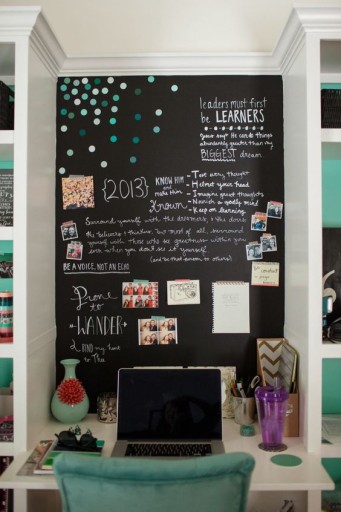 leaders must first
be LEARNERS
Jesus says He can do things
abundantly greater than my
BIGGEST dream
{2013}
KNOW HIM
and
make Him
Known
- Test every thought
- Helmet your head
- Imagine great thoughts
- Nourish a godly mind
- Keep on learning
Surround yourself with the dreamers, & the doers
the believers & thinkers, but most of all, surround
yourself with those who see greatness within you
even when you don't see it yourself
(and be that person to others)
BE A VOICE, NOT AN ECHO.
Prone
to
WANDER
& I FIND my home
in The